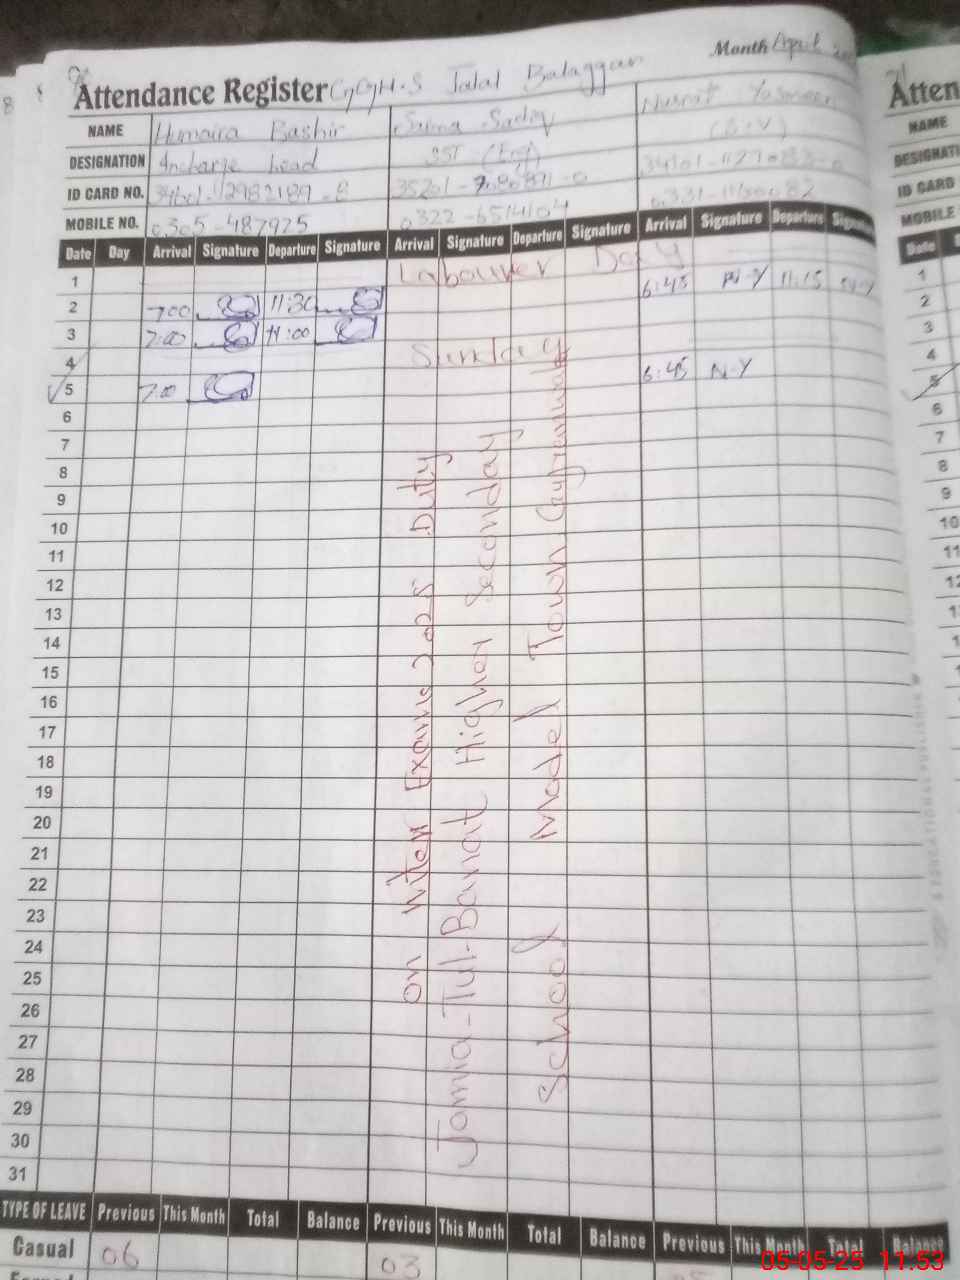 Month April
Attendance Register G.G.H.S Jalal Balaggan
NAME Humaira Bashir Saima Sadiq Nusrat Yasmeen
DESIGNATION Incharge head SST (Eng)
ID CARD NO.
MOBILE NO. 0305-487925 0322-6514104
Date Day Arrival Signature Departure Signature Arrival Signature Departure Signature Arrival Signature Departure Signature
1 Labouver Day
2 7:00 11:30 6:45 N-Y 11:15 N-Y
3 7:00 11:00
4 Sunday
5 7:00 6:45 N-Y
6
7
8
9
10
11
12
13
14
15
16
17
18
19
20
21
22
23
24
25
26
27
28
29
30
31
on inter Exams 2025 Duty
Jamia-Tul-Banat Higher Seconday
School Model Town Gujranwala
TYPE OF LEAVE Previous This Month Total Balance Previous This Month Total Balance Previous This Month Total Balance
Casual 06 03
05-05-25 11:53
Atten
NAME
DESIGNATI
ID CARD
MOBILE
Date
1
2
3
4
5
6
7
8
9
10
11
12